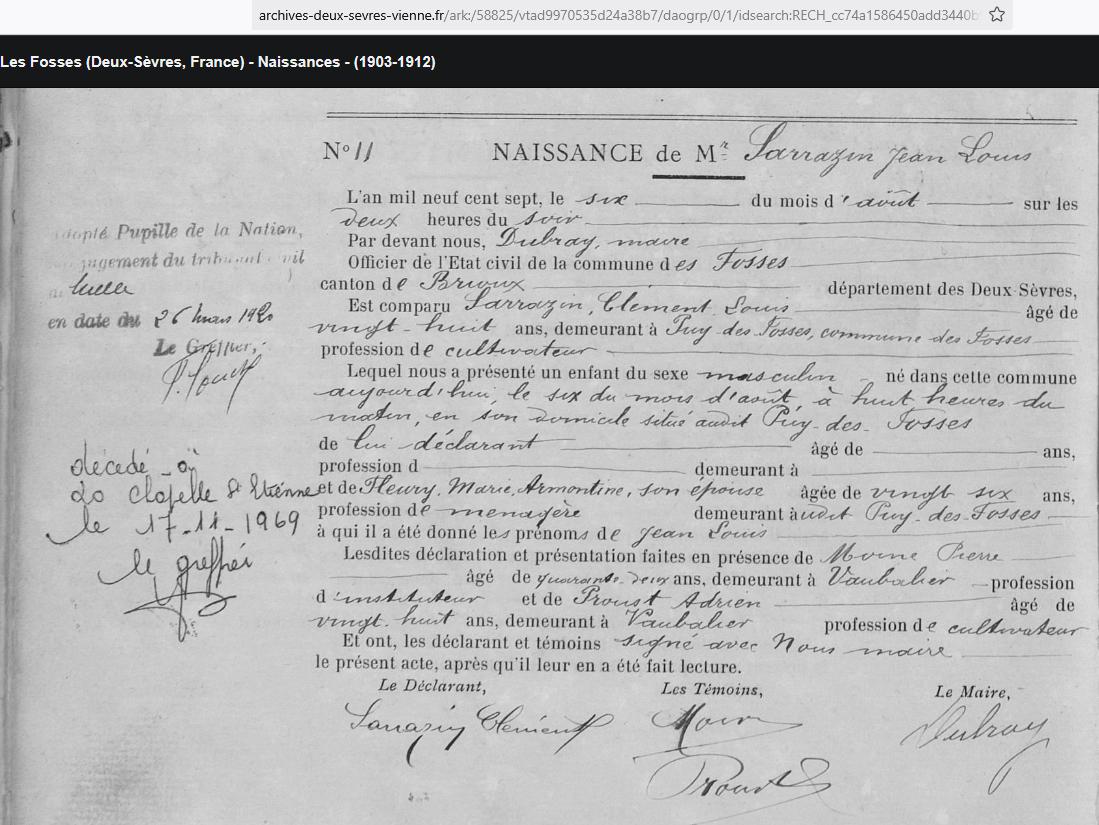 archives-deux-sevres-vienne.fr/ark:/58825/vtad9970535d24a38b7/daogrp/0/1/idsearch:RECH_cc74a1586450add3440b
Les Fosses (Deux-Sèvres, France) - Naissances - (1903-1912)
N° 11 NAISSANCE de Mr Sarrazin Jean Louis
L'an mil neuf cent sept, le six du mois d'août sur les
deux heures du soir
Par devant nous, Dubray, maire
Officier de l'Etat civil de la commune des Fosses
canton de Brioux département des Deux-Sèvres,
Est comparu Sarrazin, Clément Louis âgé de
vingt-huit ans, demeurant à Puy-des-Fosses, commune des Fosses
profession de cultivateur
Lequel nous a présenté un enfant du sexe masculin né dans cette commune
aujourd'hui, le six du mois d'août, à huit heures du
matin, en son domicile situé audit Puy-des-Fosses
de lui déclarant âgé de ans,
profession d demeurant à
et de Fleury, Marie, Armontine, son épouse âgée de vingt six ans,
profession de menagère demeurant audit Puy-des-Fosses
à qui il a été donné les prénoms de Jean Louis
Lesdites déclaration et présentation faites en présence de Moine Pierre
âgé de quarante-deux ans, demeurant à Vaubalier profession
d'instituteur et de Proust Adrien âgé de
vingt-huit ans, demeurant à Vaubalier profession de cultivateur
Et ont, les déclarant et témoins signé avec Nous maire
le présent acte, après qu'il leur en a été fait lecture.
Le Déclarant, Les Témoins, Le Maire,
Sarrazin Clément Moine Dubray
Proust
adopté Pupille de la Nation,
jugement du tribunal civil
Melle
en date du 26 mars 1920
Le Greffier,
décédé à
La Chapelle St Etienne
le 17-11-1969
le greffier